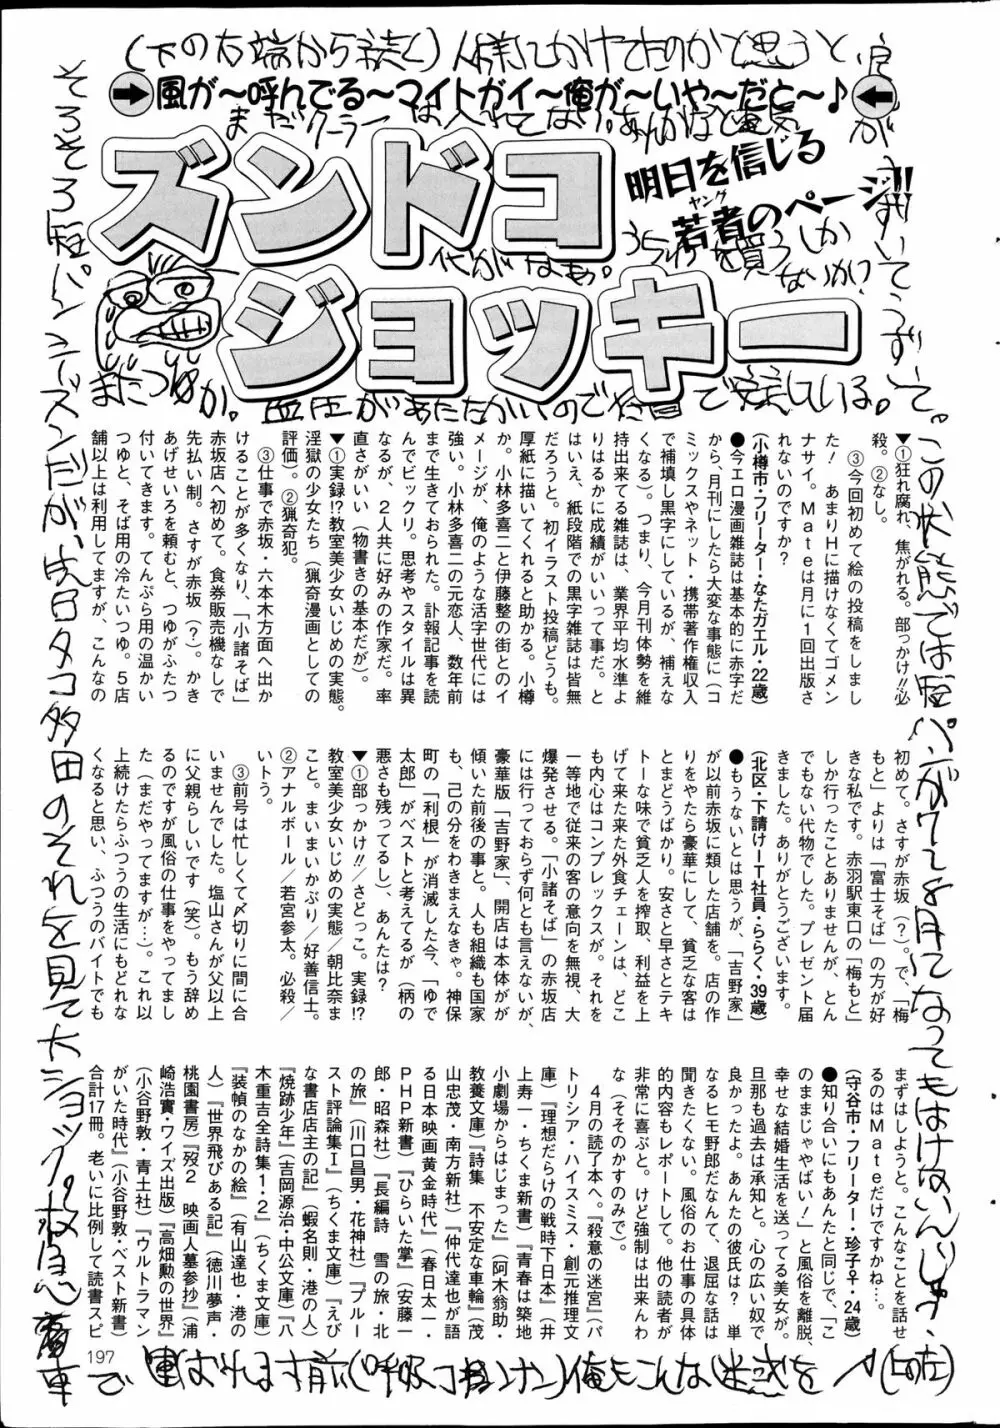 風が～呼んでる～マイトガイ～俺が～いや～だと～♪
ズンドコ
ジョッキー
明日を信じる
若者のページ!!
ヤング
▼①狂れ腐れ、焦がれる。部っかけ!!必
殺。②なし。
③今回初めて絵の投稿をしまし
た！　あまりＨに描けなくてゴメン
ナサイ。Ｍａｔｅは月に１回出版さ
れないのですか？
（小樽市・フリーター・なたガエル・22歳）
●今エロ漫画雑誌は基本的に赤字だ
から、月刊にしたら大変な事態に（コ
ミックスやネット・携帯著作権収入
で補填し黒字にしているが、補えな
くなる）。つまり、今月刊体勢を維
持出来てる雑誌は、業界平均水準よ
りはるかに成績がいいって事だ。と
はいえ、紙段階での黒字雑誌は皆無
だろうと。初イラスト投稿どうも。
厚紙に描いてくれると助かる。小樽
か。小林多喜二と伊藤整の街とのイ
メージが、俺のような活字世代には
強い。小林多喜二の元恋人、数年前
まで生きておられた。訃報記事を読
んでビックリ。思考やスタイルは異
なるが、２人共に好みの作家だ。率
直さがいい（物書きの基本だが）。
▼①実録!?教室美少女いじめの実態。
淫獄の少女たち（猟奇漫画としての
評価）。②猟奇犯。
③仕事で赤坂・六本木方面へ出か
けることが多くなり、「小諸そば」
赤坂店へ初めて。食券販売機なしで
先払い制。さすが赤坂（？）。かき
あげせいろを頼むと、つゆがふたつ
付いてきます。てんぷら用の温かい
つゆと、そば用の冷たいつゆ。５店
舗以上は利用してますが、こんなの
初めて。さすが赤坂（？）。で、「梅
もと」よりは「富士そば」の方が好
きな私です。赤羽駅東口の「梅もと」
しか行ったことありませんが、とん
でもない代物でした。プレゼント届
きました。ありがとうございます。
（北区・下請けＩＴ社員・ららく・39歳）
●もうないとは思うが、「吉野家」
が以前赤坂に類した店舗を。店の作
りをやたら豪華にして、貧乏な客は
とまどうばかり。安さと早さとテキ
トーな味で貧乏人を搾取、利益を上
げて来た外食チェーンは、どこ
も内心はコンプレックスが。それを
一等地で従来の客の意向を無視、大
爆発させる。「小諸そば」の赤坂店
には行っておらず何とも言えないが、
豪華版「吉野家」、開店は本体がが
傾いた前後の事と。人も組織も国家
も、己の分をわきまえなきゃ。神保
町の「利根」が消滅した今、「ゆで
太郎」がベストと考えてるが（柄の
悪さも残ってるし）、あんたは？
▼①部っかけ!!／さどっこ。実録!?
教室美少女いじめの実態／朝比奈ま
こと。まいまいかぶり／好善信士。
②アナルボール／若宮参太。必殺／
いトう。
③前号は忙しくて〆切りに間に合
いませんでした。塩山さんが父以上
に父親らしいです（笑）。もう辞め
るのですが風俗の仕事をやってまし
た（まだやってますが…）。これ以
上続けたらふつうの生活にもどれな
くなると思い、ふつうのバイトでも
まずはしようと。こんなことを話せ
るのはＭａｔｅだけですかね…。
（守谷市・フリーター・珍子♀・24歳）
●知り合いにもあんたと同じで、「こ
のままじゃやばい！」と風俗を離脱、
幸せな結婚生活を送ってる美女が。
旦那も過去は承知と。心の広い奴で
良かったよ。あんたの彼氏は？　単
なるヒモ野郎だなんて、退屈な話は
聞きたくない。風俗のお仕事の具体
的内容もレポートして。他の読者が
非常に喜ぶと。けど強制は出来んわ
な（そそのかすのみで）。
４月の読了本へ。『殺意の迷宮』（パ
トリシア・ハイスミス・創元推理文
庫）『理想だらけの戦時下日本』（井
上寿一・ちくま新書）『青春は築地
小劇場からはじまった』（阿木翁助・
教養文庫）『詩集　不安定な車輪』（茂
山忠茂・南方新社）『仲代達也が語
る日本映画黄金時代』（春日太一・
ＰＨＰ新書）『ひらいた掌』（安藤一
郎・昭森社）『長編詩　雪の旅・北
の旅』（川口昌男・花神社）『プルー
スト評論集Ⅰ』（ちくま文庫）『えび
な書店店主の記』（蝦名則・港の人）
『焼跡少年』（吉岡源治・中公文庫）『八
木重吉全詩集１・２』（ちくま文庫）
『装幀のなかの絵』（有山達也・港の
人）『世界飛びある記』（徳川夢声・
桃園書房）『歿２　映画人墓参抄』（浦
崎浩實・ワイズ出版）『高畑勲の世界』
（小谷野敦・青土社）『ウルトラマン
がいた時代』（小谷野敦・ベスト新書）
合計17冊。老いに比例して読書スピ
197
この状態では短パンがワて8月になってもはけないんじゃ、